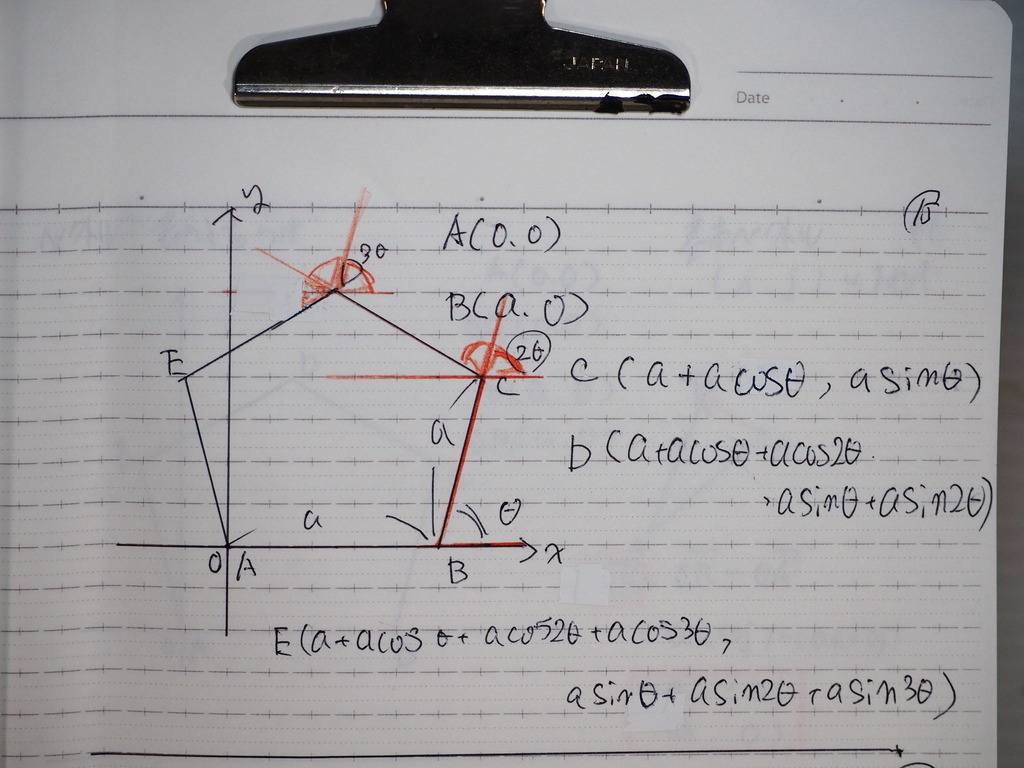 JAPAN
Date
y
3θ
A(0.0)
B(a.0)
2θ
E
C
C (a+acosθ, asinθ)
a
D (a+acosθ+acos2θ
, asinθ+asin2θ)
a
θ
x
O A
B
E(a+acosθ+acos2θ+acos3θ,
asinθ+asin2θ+asin3θ)